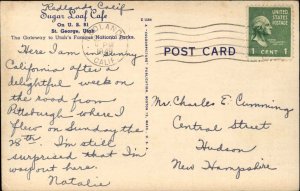 Redlands Calif
Sugar Loaf Cafe
On U. S. 91
St. George, Utah
The Gateway to Utah's Famous National Parks.
POST CARD
1 CENT 1
CALIF.
Here I am in sunny
California after a
delightful week on
the road from
Pittsburgh where I
flew on Sunday the
28th. I'm still
surprised that I'm
way out here.
Natalie
Mr. Charles E. Cumming
Central Street
Hudson
New Hampshire